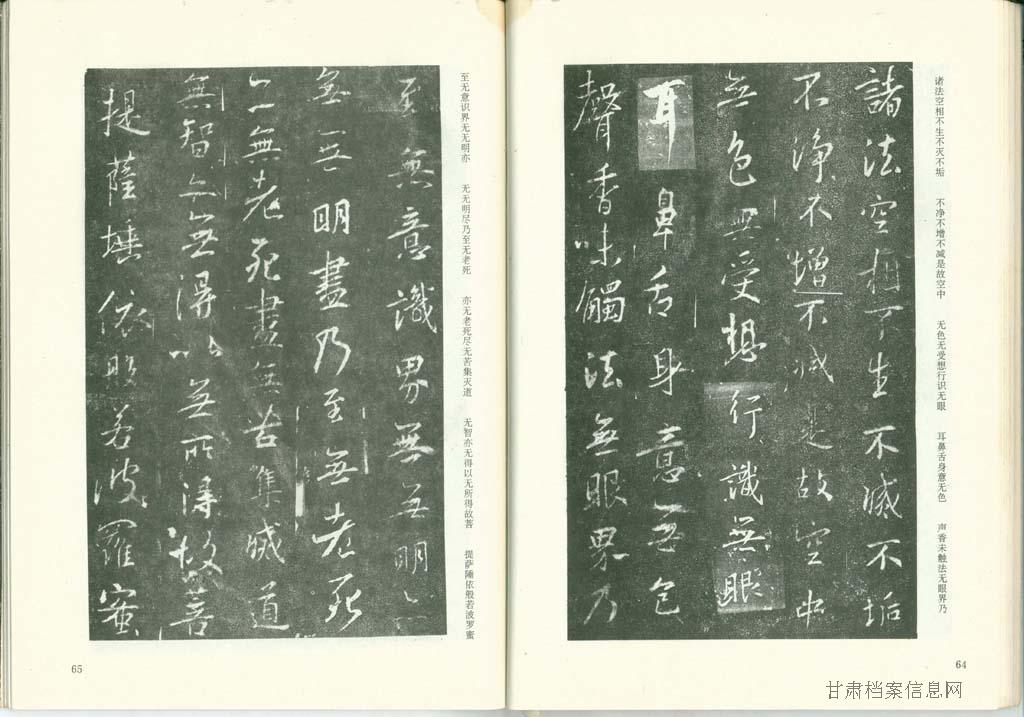 诸法空相不生不灭不垢　不净不增不减是故空中　无色无受想行识无眼　耳鼻舌身意无色　声香未触法无眼界乃
諸法空相不生不滅不垢
不淨不增不減是故空中
無色無受想行識無眼
耳鼻舌身意無色
聲香味觸法無眼界乃
64
至无意识界无无明亦　无无明尽乃至无老死　亦无老死尽无苦集灭道　无智亦无得以无所得故菩　提萨陲依般若波罗蜜
至無意識界無無明亦
無無明盡乃至無老死
亦無老死盡無苦集滅道
無智亦無得以無所得故菩
提薩埵依般若波羅蜜
65
甘肃档案信息网